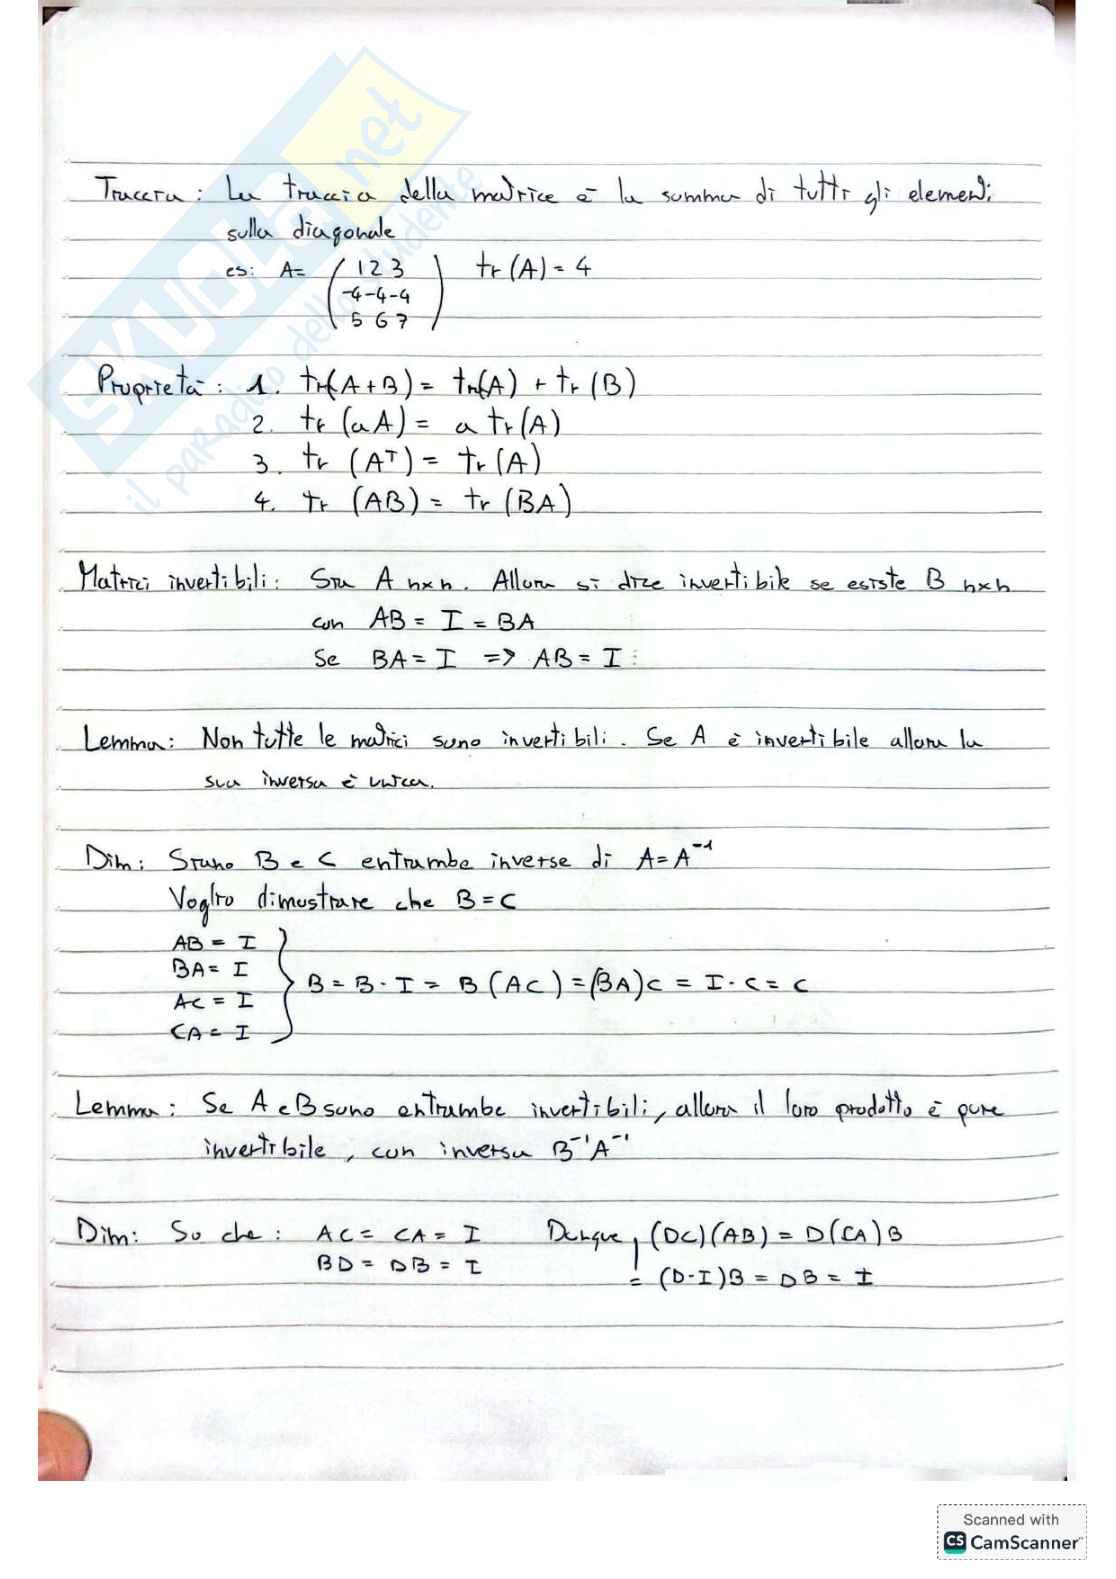 SKUOLA.net
il paradiso dello studente
Traccia : La traccia della matrice è la somma di tutti gli elementi
sulla diagonale
es: A= ( 1 2 3 tr (A) = 4
-4 -4 -4
5 6 7 )
Proprietà : 1. tr(A+B) = tr(A) + tr (B)
2. tr (aA) = a tr (A)
3. tr (Aᵀ) = tr (A)
4. tr (AB) = tr (BA)
Matrici invertibili: Sia A n×n. Allora si dice invertibile se esiste B n×n
con AB = I = BA
Se BA = I => AB = I
Lemma: Non tutte le matrici sono invertibili. Se A è invertibile allora la
sua inversa è unica.
Dim: Siano B e C entrambe inverse di A = A⁻¹
Voglio dimostrare che B = C
AB = I
BA = I
AC = I
CA = I
} B = B · I = B (AC) = (BA)C = I · C = C
Lemma: Se A e B sono entrambe invertibili, allora il loro prodotto è pure
invertibile, con inversa B⁻¹A⁻¹
Dim: So che : AC = CA = I Dunque, (DC)(AB) = D(CA)B
BD = DB = I = (D·I)B = DB = I
Scanned with
CS CamScanner